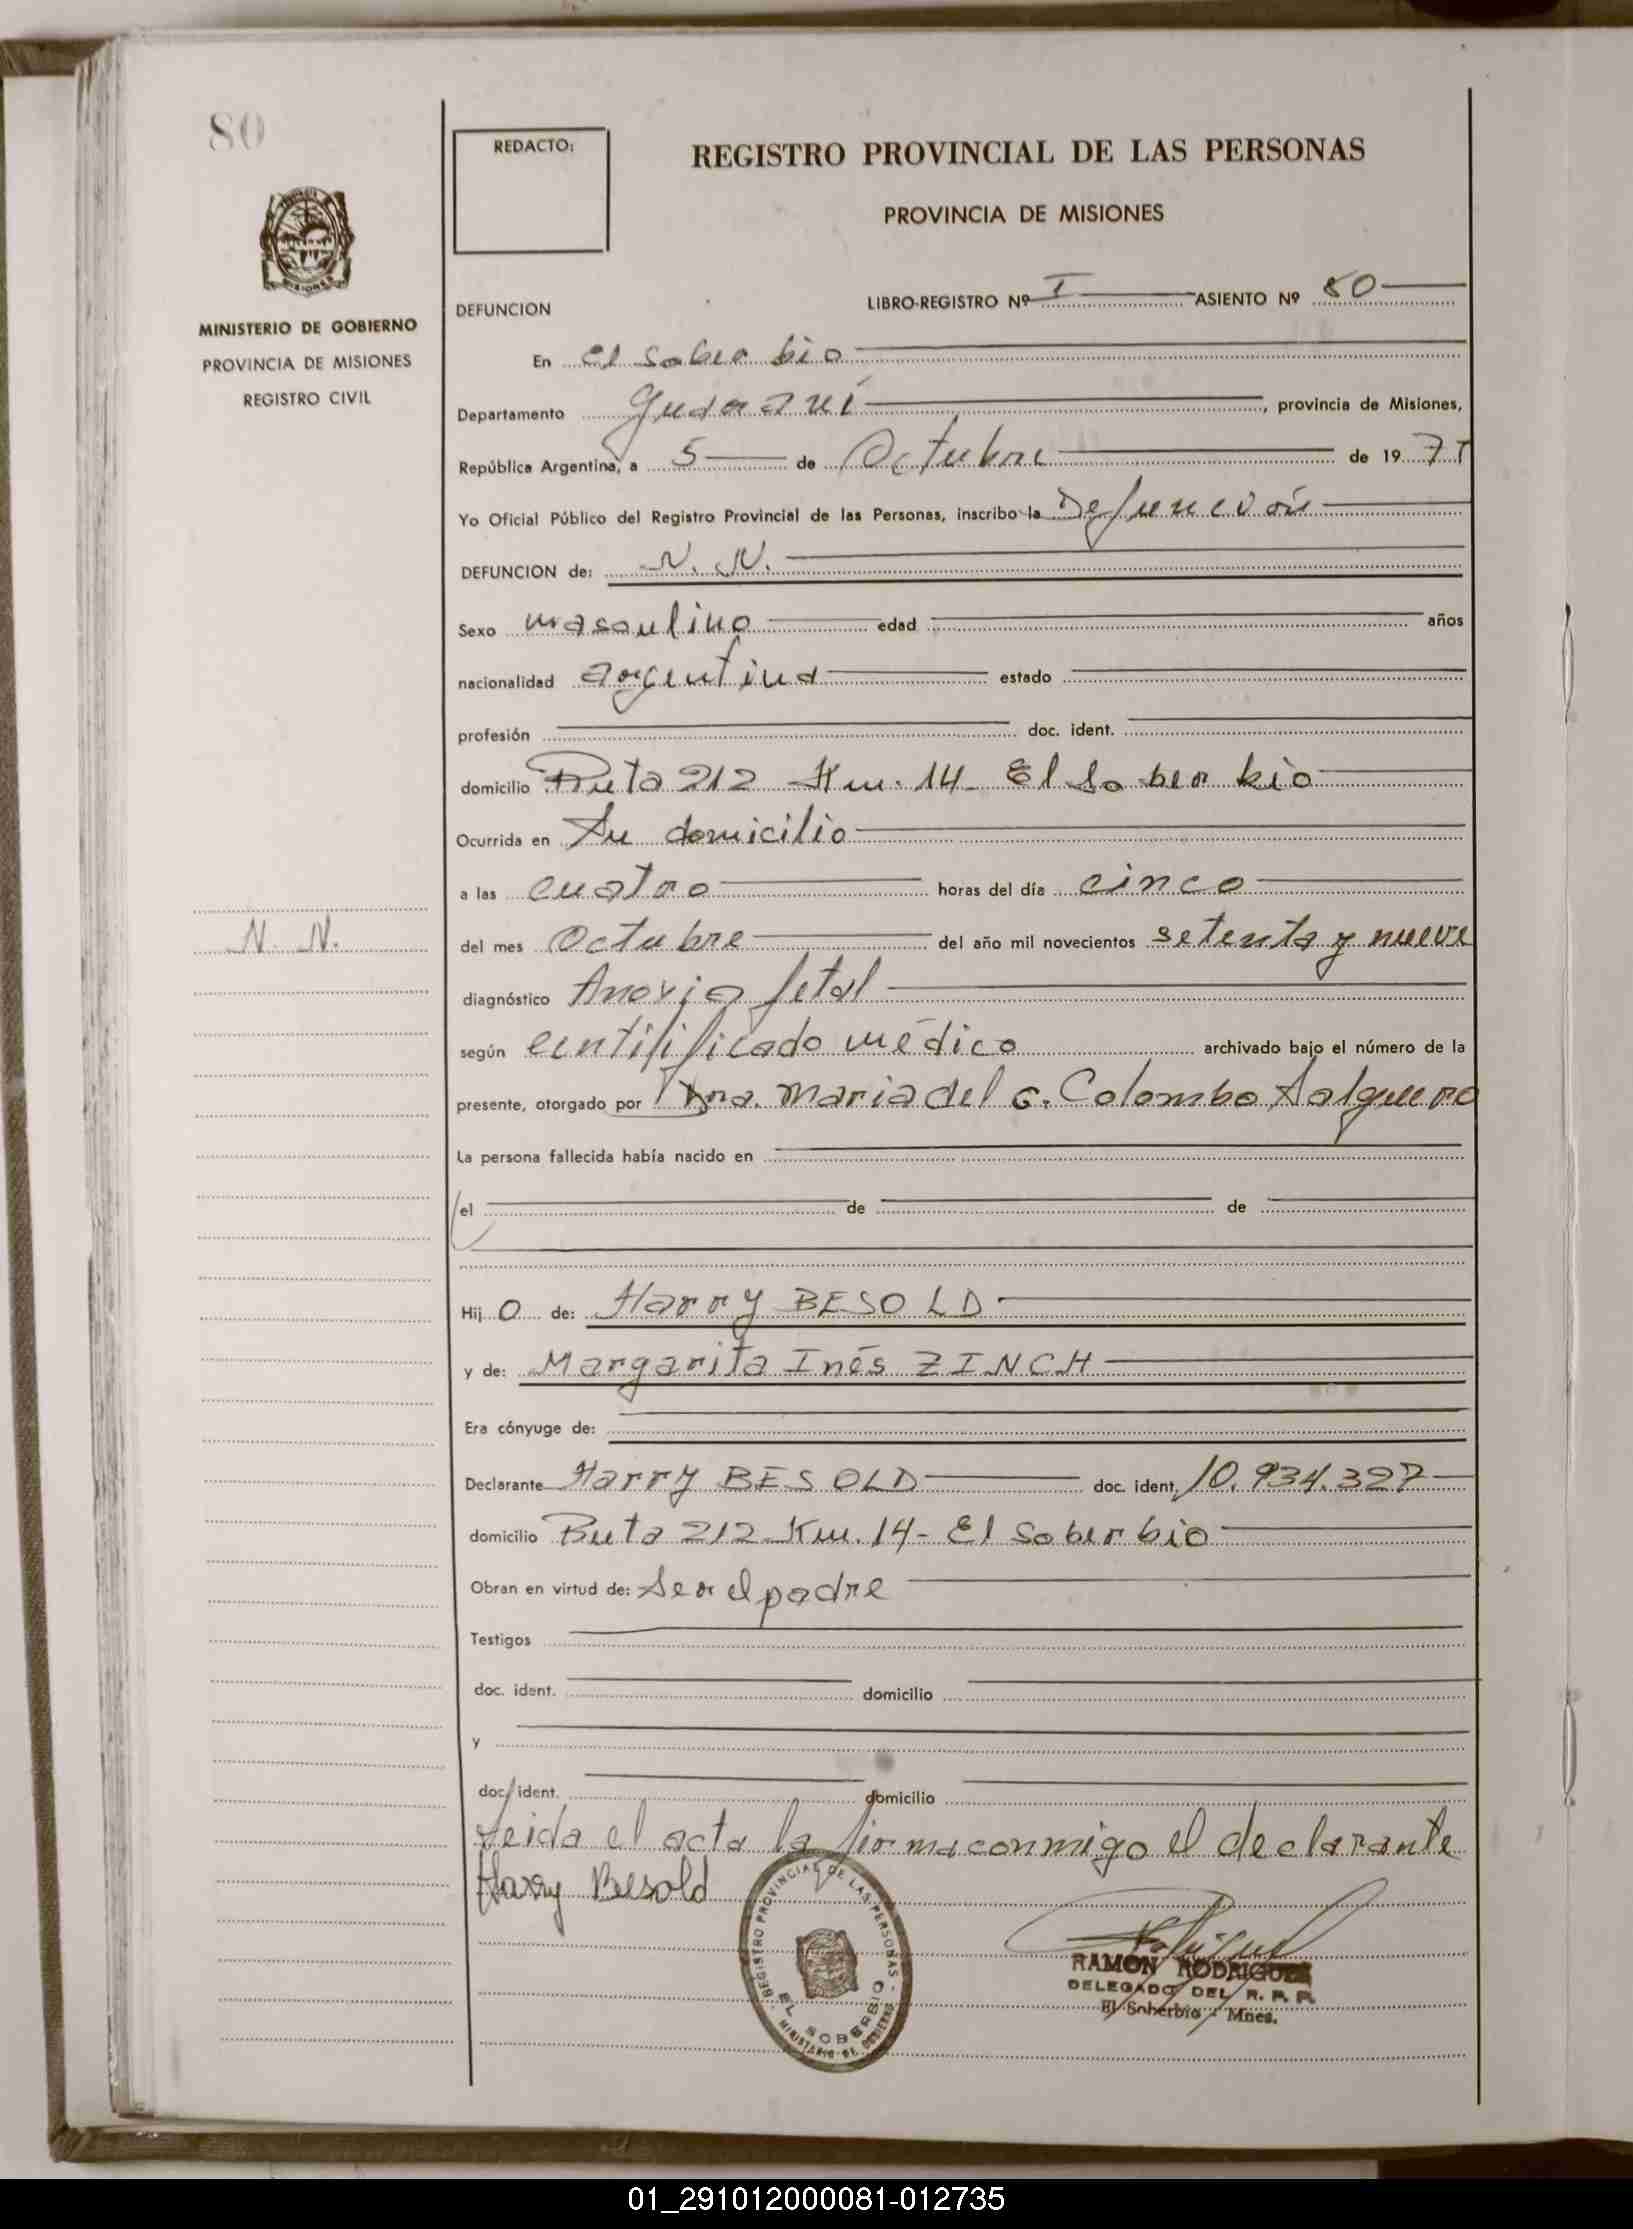 80
REDACTO:
REGISTRO PROVINCIAL DE LAS PERSONAS
PROVINCIA DE MISIONES
MISIONES
MINISTERIO DE GOBIERNO
PROVINCIA DE MISIONES
REGISTRO CIVIL
DEFUNCION LIBRO-REGISTRO Nº I ASIENTO Nº 80
En El Soberbio
Departamento Guaraní, provincia de Misiones,
República Argentina, a 5 de Octubre de 19 79
Yo Oficial Público del Registro Provincial de las Personas, inscribo la Defunción
DEFUNCION de: N. N.
Sexo masculino edad años
nacionalidad argentina estado
profesión doc. ident.
domicilio Ruta 212 Km. 14 El Soberbio
Ocurrida en Su domicilio
a las cuatro horas del día cinco
N. N.
del mes Octubre del año mil novecientos setenta y nueve
diagnóstico Anoxia fetal
según certificado médico archivado bajo el número de la
presente, otorgado por Dra. Maria del C. Colombo Salguero
La persona fallecida había nacido en
el de de
Hij o de: Harry BESOLD
y de: Margarita Inés ZINCH
Era cónyuge de:
Declarante Harry BESOLD doc. ident. 10.934.327
domicilio Ruta 212 Km. 14 - El Soberbio
Obran en virtud de: Ser el padre
Testigos
doc. ident. domicilio
y
doc. ident. domicilio
Leida el acta la firma conmigo el declarante
Harry Besold
REGISTRO PROVINCIAL DE LAS PERSONAS
EL SOBERBIO
MINISTERIO DE GOBIERNO
RAMON RODRIGUEZ
DELEGADO DEL R. P. P.
El Soberbio - Mnes.
01_291012000081-012735